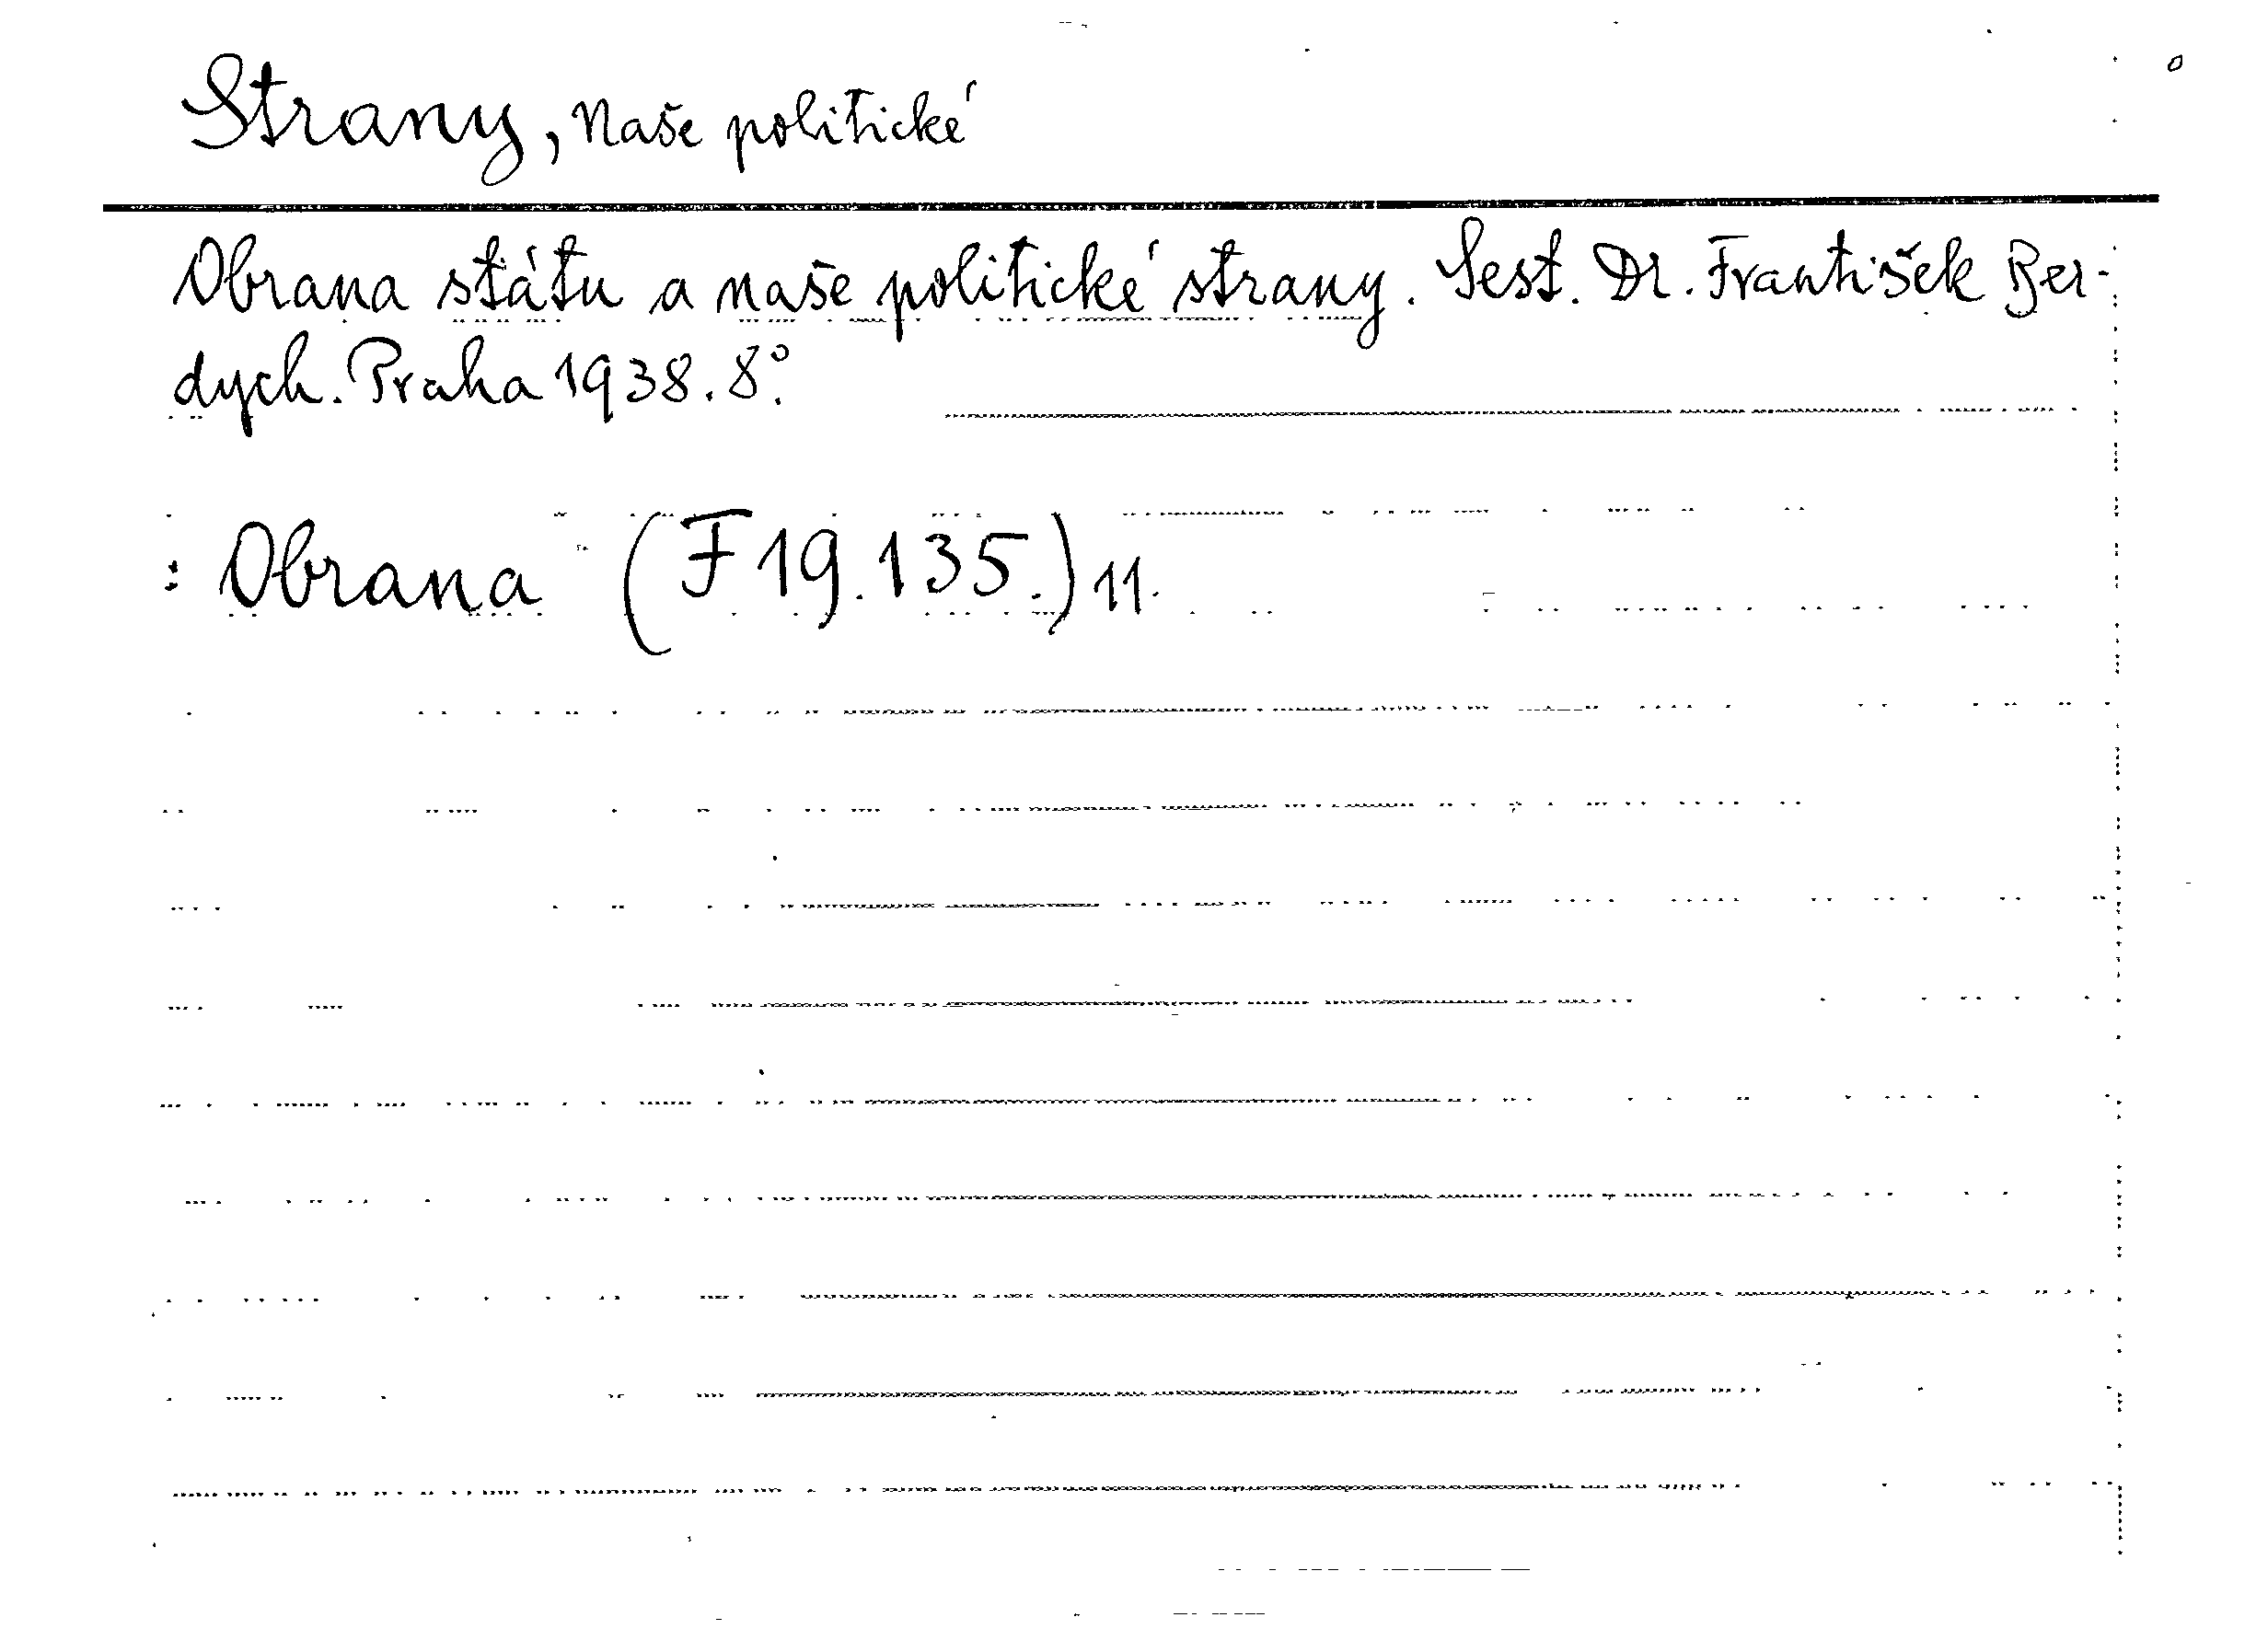 Strany, naše politické
Obrana státu a naše politické strany. Sest. Dr. František Ber-
dych. Praha 1938. 8°.
: Obrana (F 19.135.) 11.